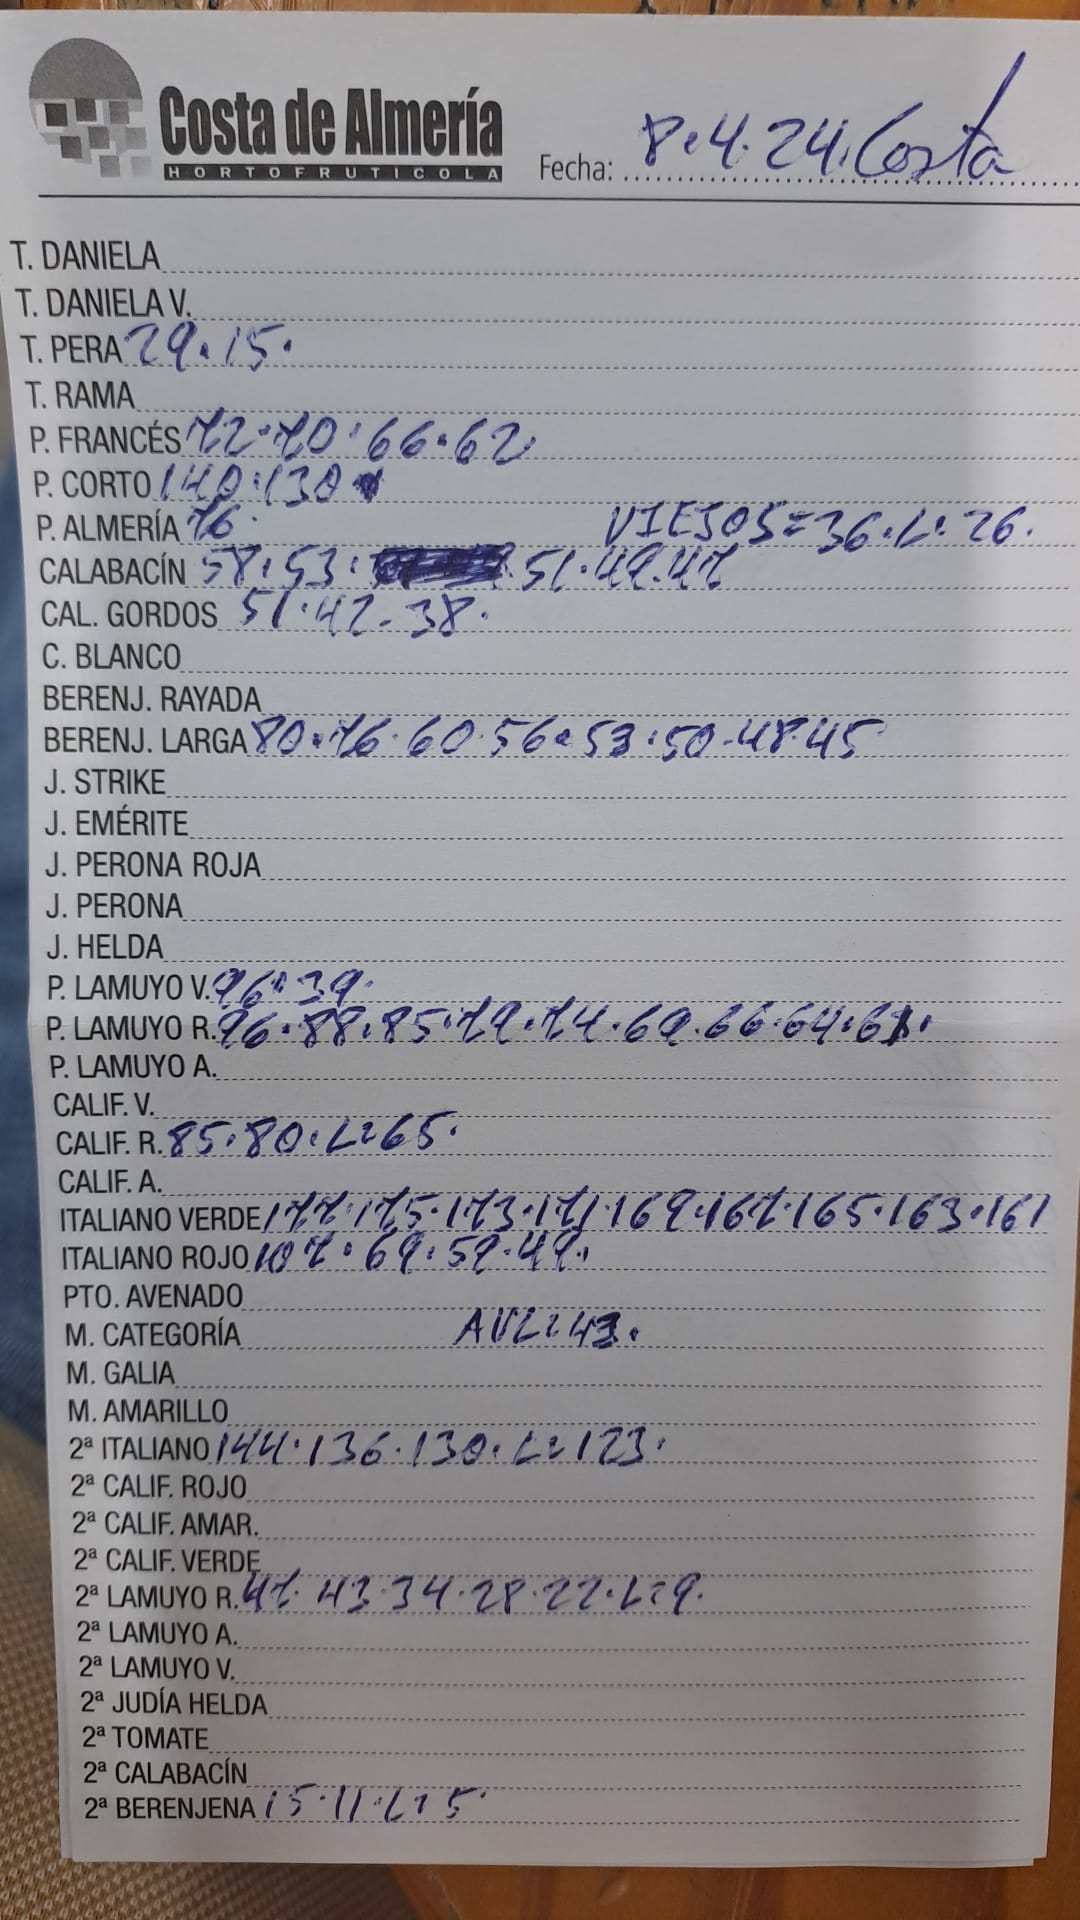 Costa de Almería
HORTOFRUTICOLA
Fecha: 8.4.24. Costa
T. DANIELA
T. DANIELA V.
T. PERA 29.15.
T. RAMA
P. FRANCÉS 72.70.66.62.
P. CORTO 140.130
P. ALMERÍA 76. VIEJOS=36.L=26.
CALABACÍN 58.53. 51.49.47
CAL. GORDOS 51.42.38.
C. BLANCO
BERENJ. RAYADA
BERENJ. LARGA 80.76.60.56.53.50.48.45
J. STRIKE
J. EMÉRITE
J. PERONA ROJA
J. PERONA
J. HELDA
P. LAMUYO V. 96.39.
P. LAMUYO R. 96.88.85.79.74.69.66.64.61.
P. LAMUYO A.
CALIF. V.
CALIF. R. 85.80.L=65.
CALIF. A.
ITALIANO VERDE 177.175.173.171.169.167.165.163.161
ITALIANO ROJO 107.69.59.49.
PTO. AVENADO
M. CATEGORÍA AVL=43.
M. GALIA
M. AMARILLO
2ª ITALIANO 144.136.130.L=123.
2ª CALIF. ROJO
2ª CALIF. AMAR.
2ª CALIF. VERDE
2ª LAMUYO R. 47.43.34.28.22.L=9.
2ª LAMUYO A.
2ª LAMUYO V.
2ª JUDÍA HELDA
2ª TOMATE
2ª CALABACÍN
2ª BERENJENA 15.11.L=5.